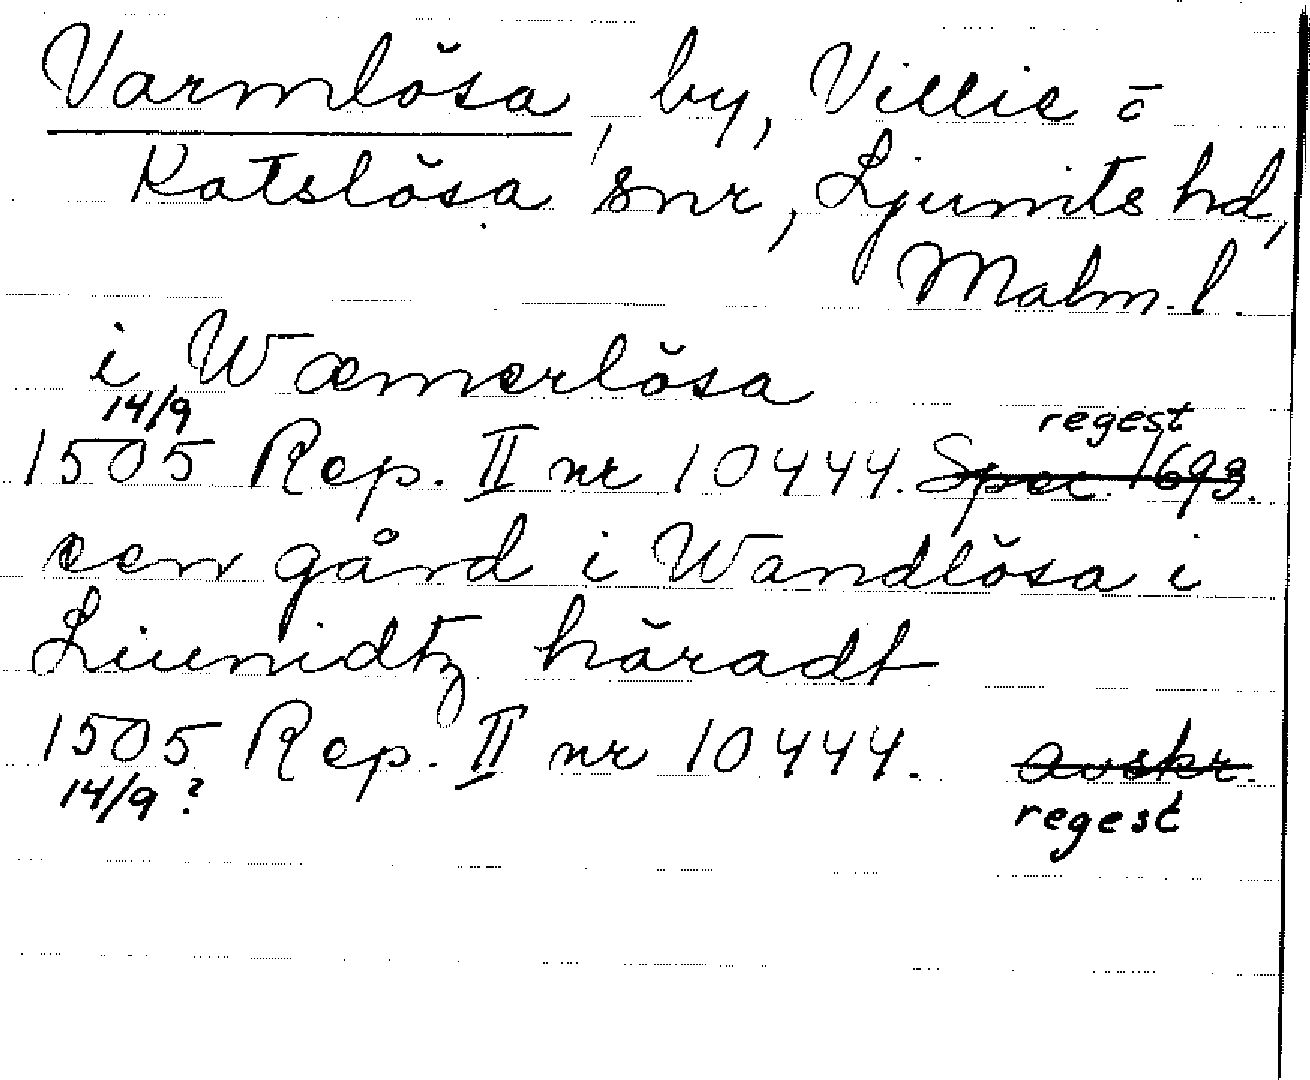 Varmlösa, by, Villie o
Katslösa snr, Ljunits hd,
Malm. l.
i Wæmerlösa
14/9 regest
1505 Rep. II nr 10444. Spec. 1693.
een gård i Wandlösa i
Liunidtz häradt
1505 Rep. II nr 10444. avskr.
14/9 ? regest